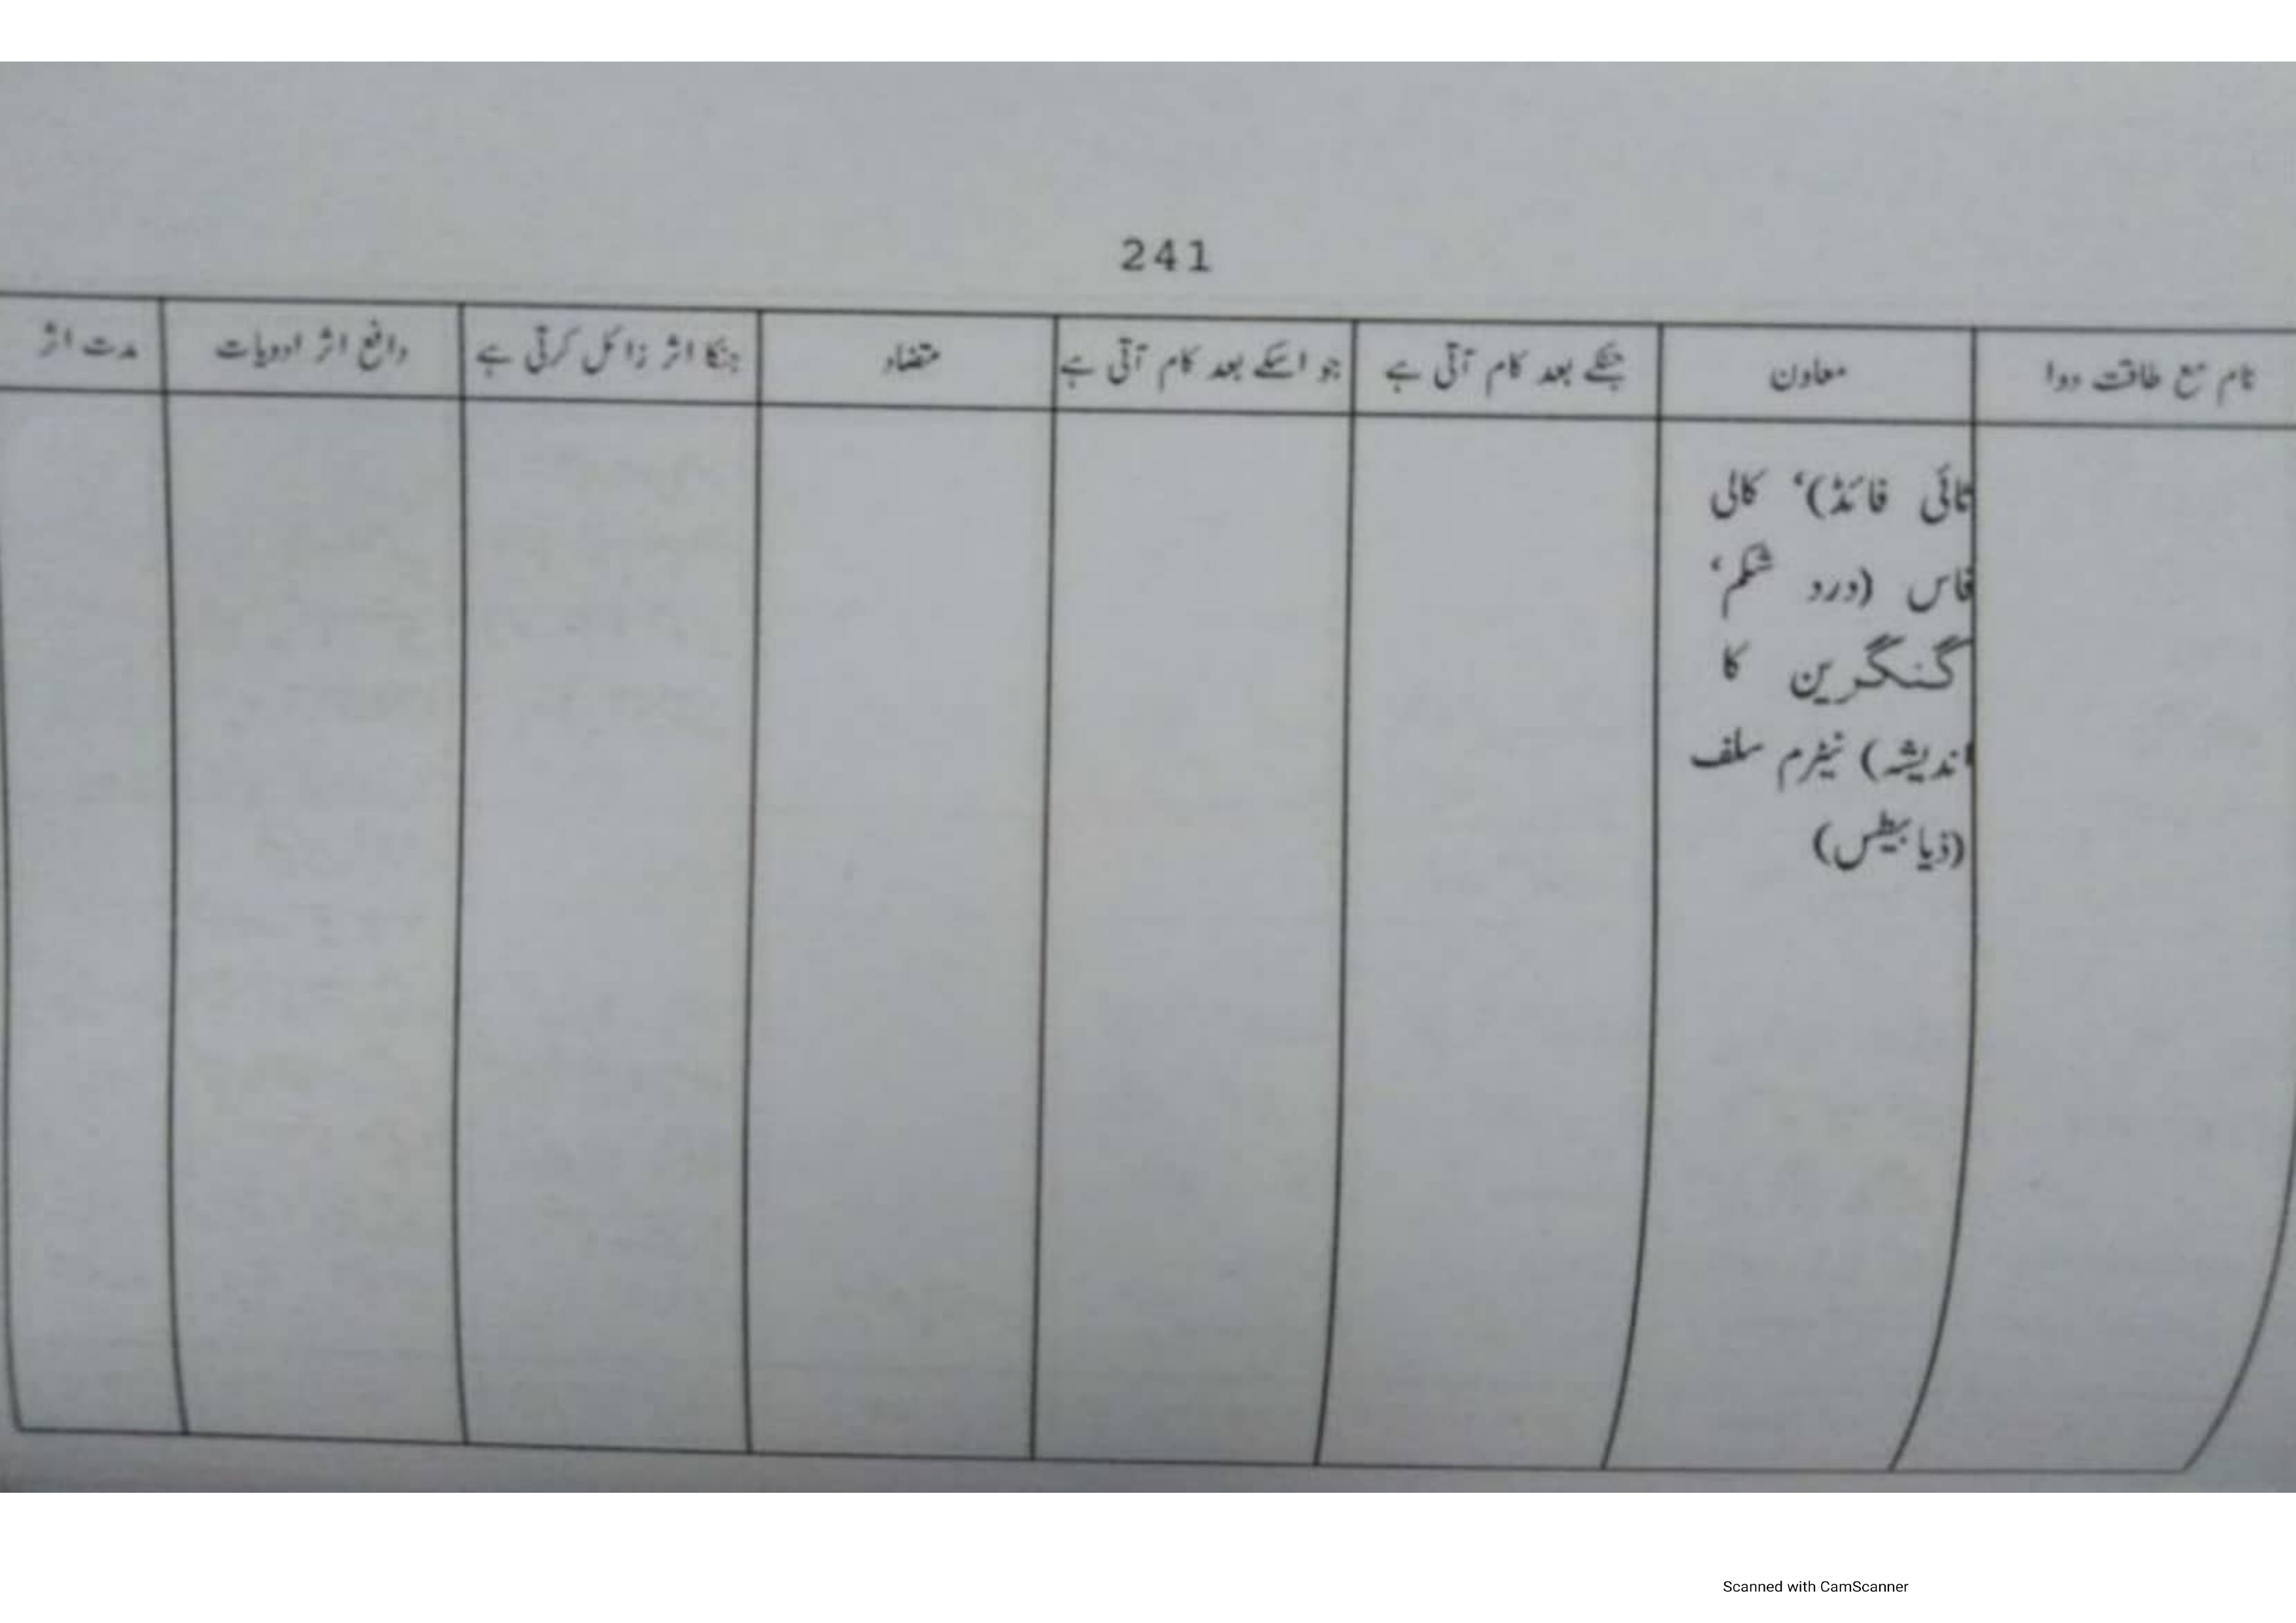 241
نام مع طاقت دوا	معاون	جنکے بعد کام آتی ہے	جو اسکے بعد کام آتی ہے	متضاد	جنکا اثر زائل کرتی ہے	دافع اثر ادویات	مدت اثر
ٹائی فائڈ)، کالی
فاس (درد شکم،
گنگرین کا
اندیشہ) نیٹرم سلف
(ذیابیطس)
Scanned with CamScanner